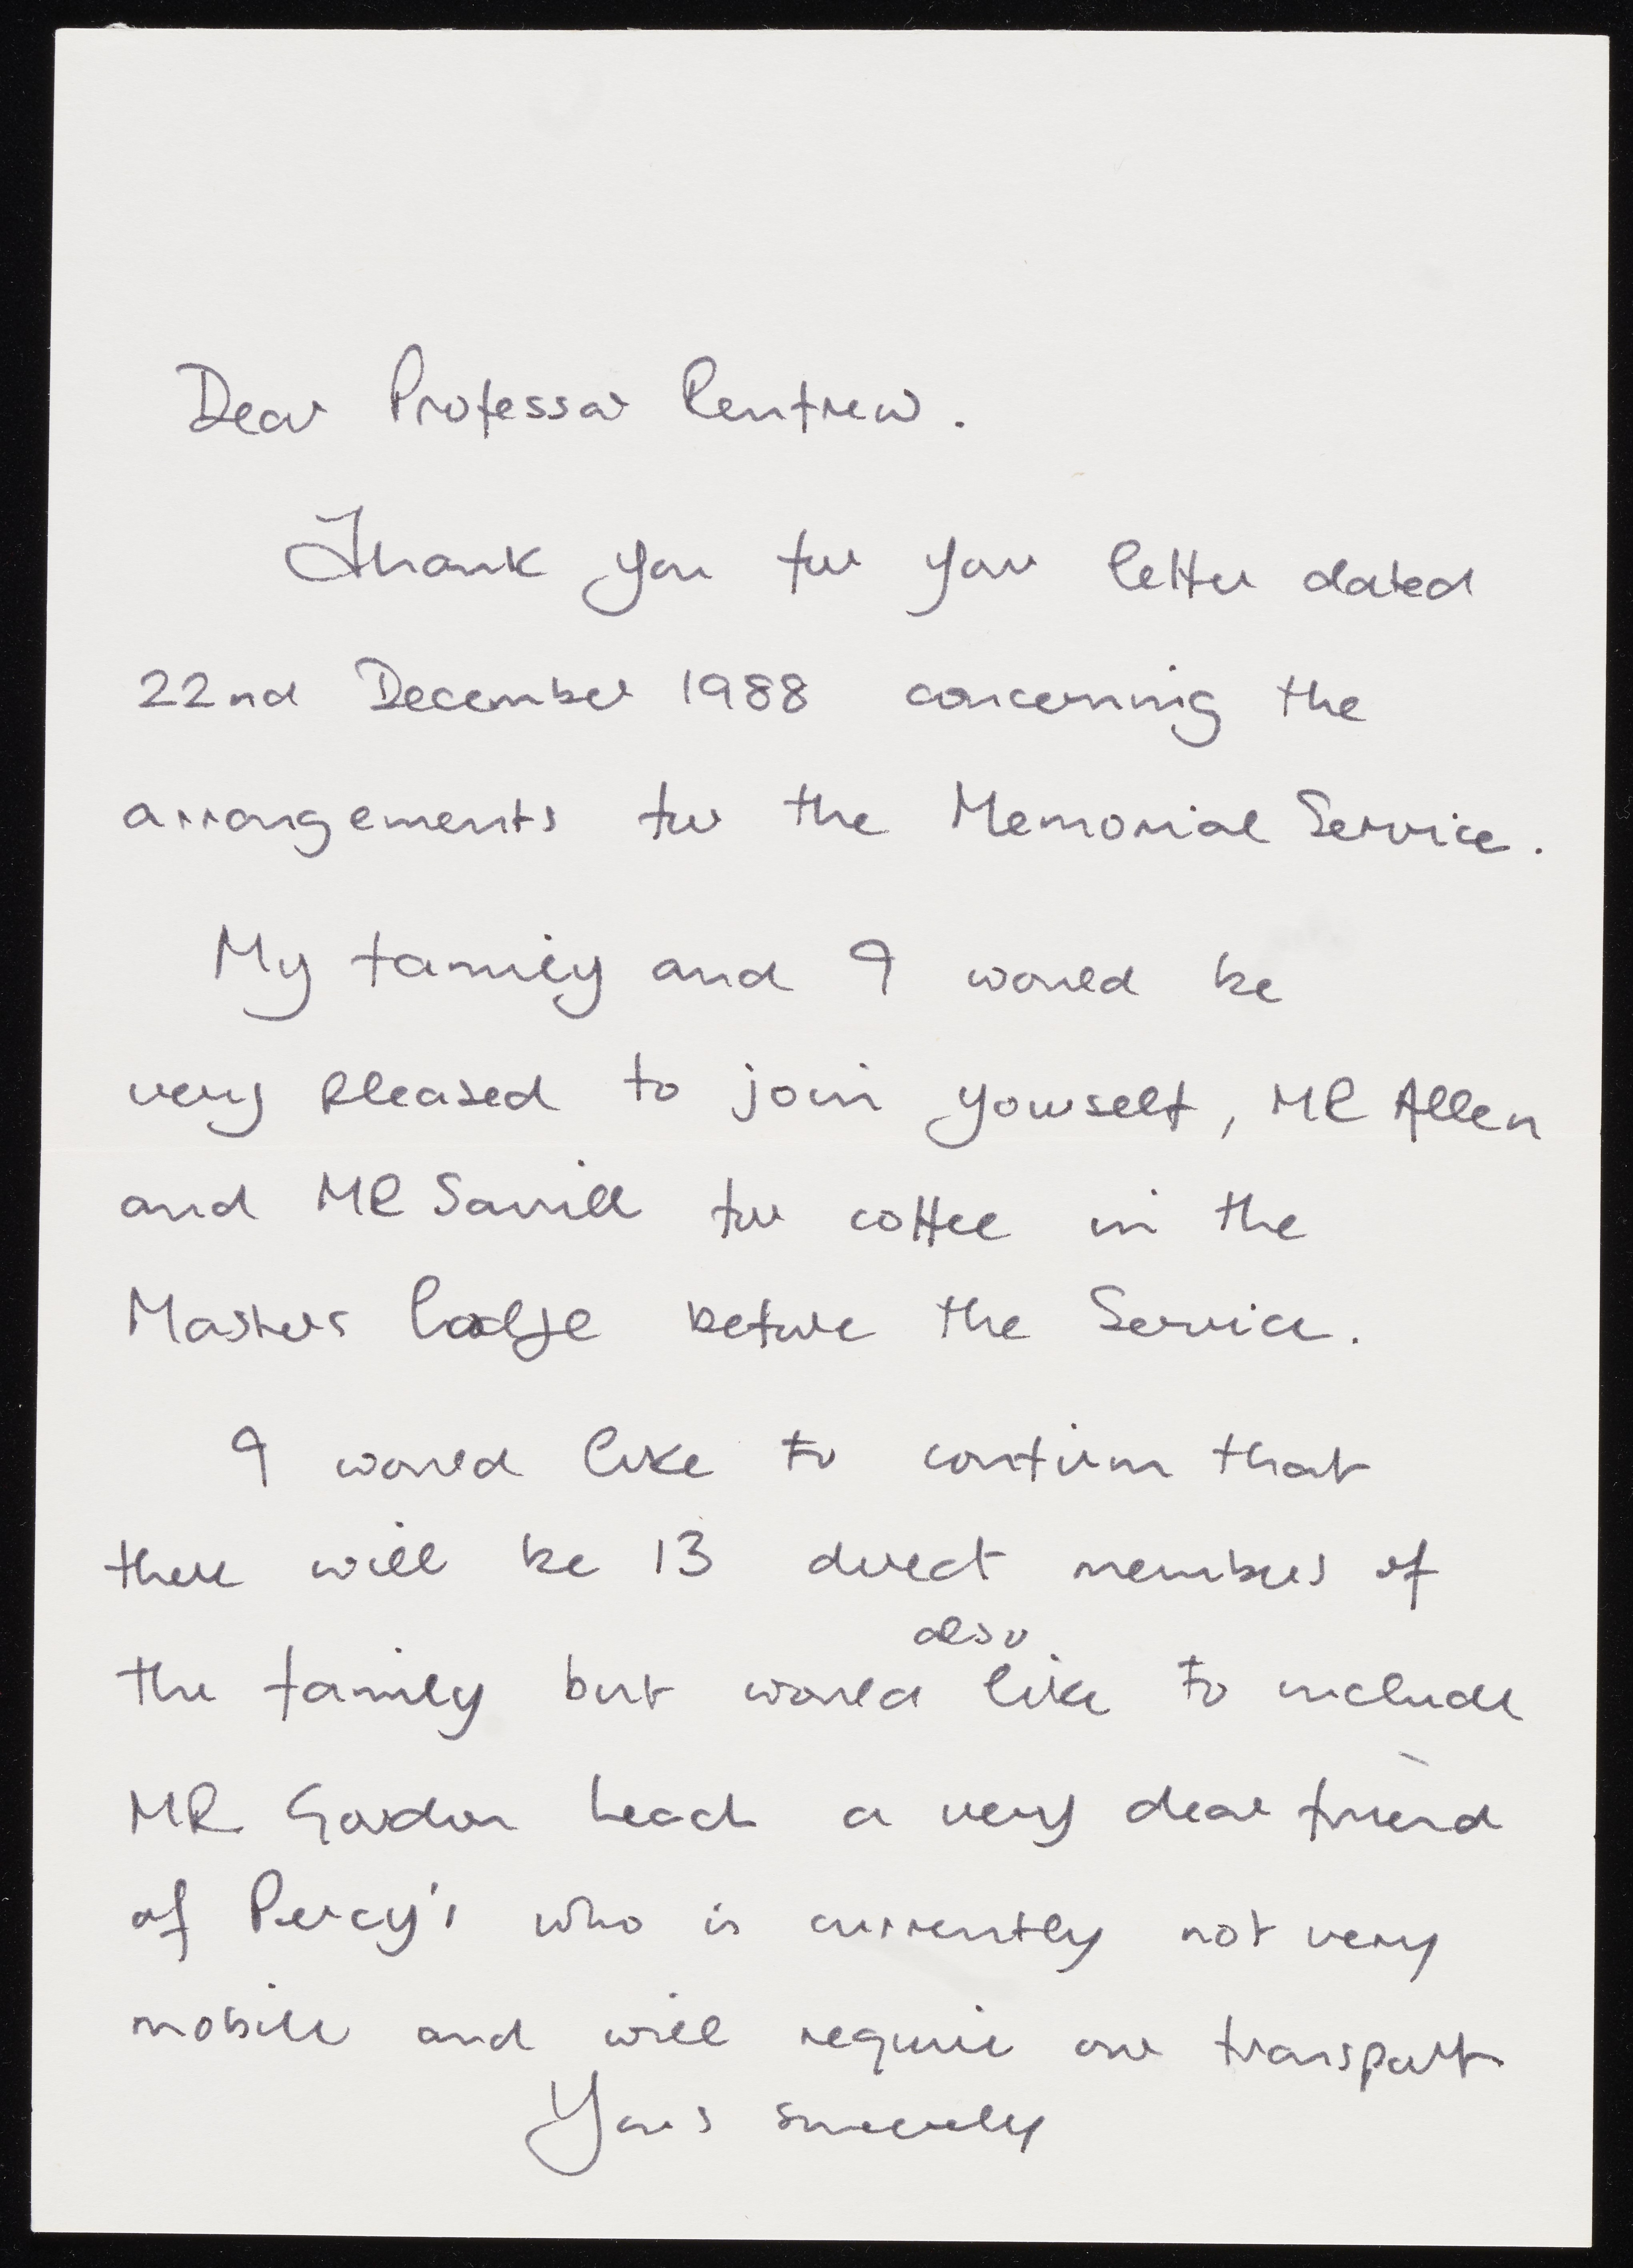 Dear Professor Renfrew.
Thank you for your letter dated
22nd December 1988 concerning the
arrangements for the Memorial Service.
My family and I would be
very pleased to join yourself, MR Allen
and MR Savill for coffee in the
Masters Lodge before the Service.
I would like to confirm that
there will be 13 direct members of
also
the family but would like to include
MR Gordon Leach a very dear friend
of Percy's who is currently not very
mobile and will require our transport
Yours sincerely